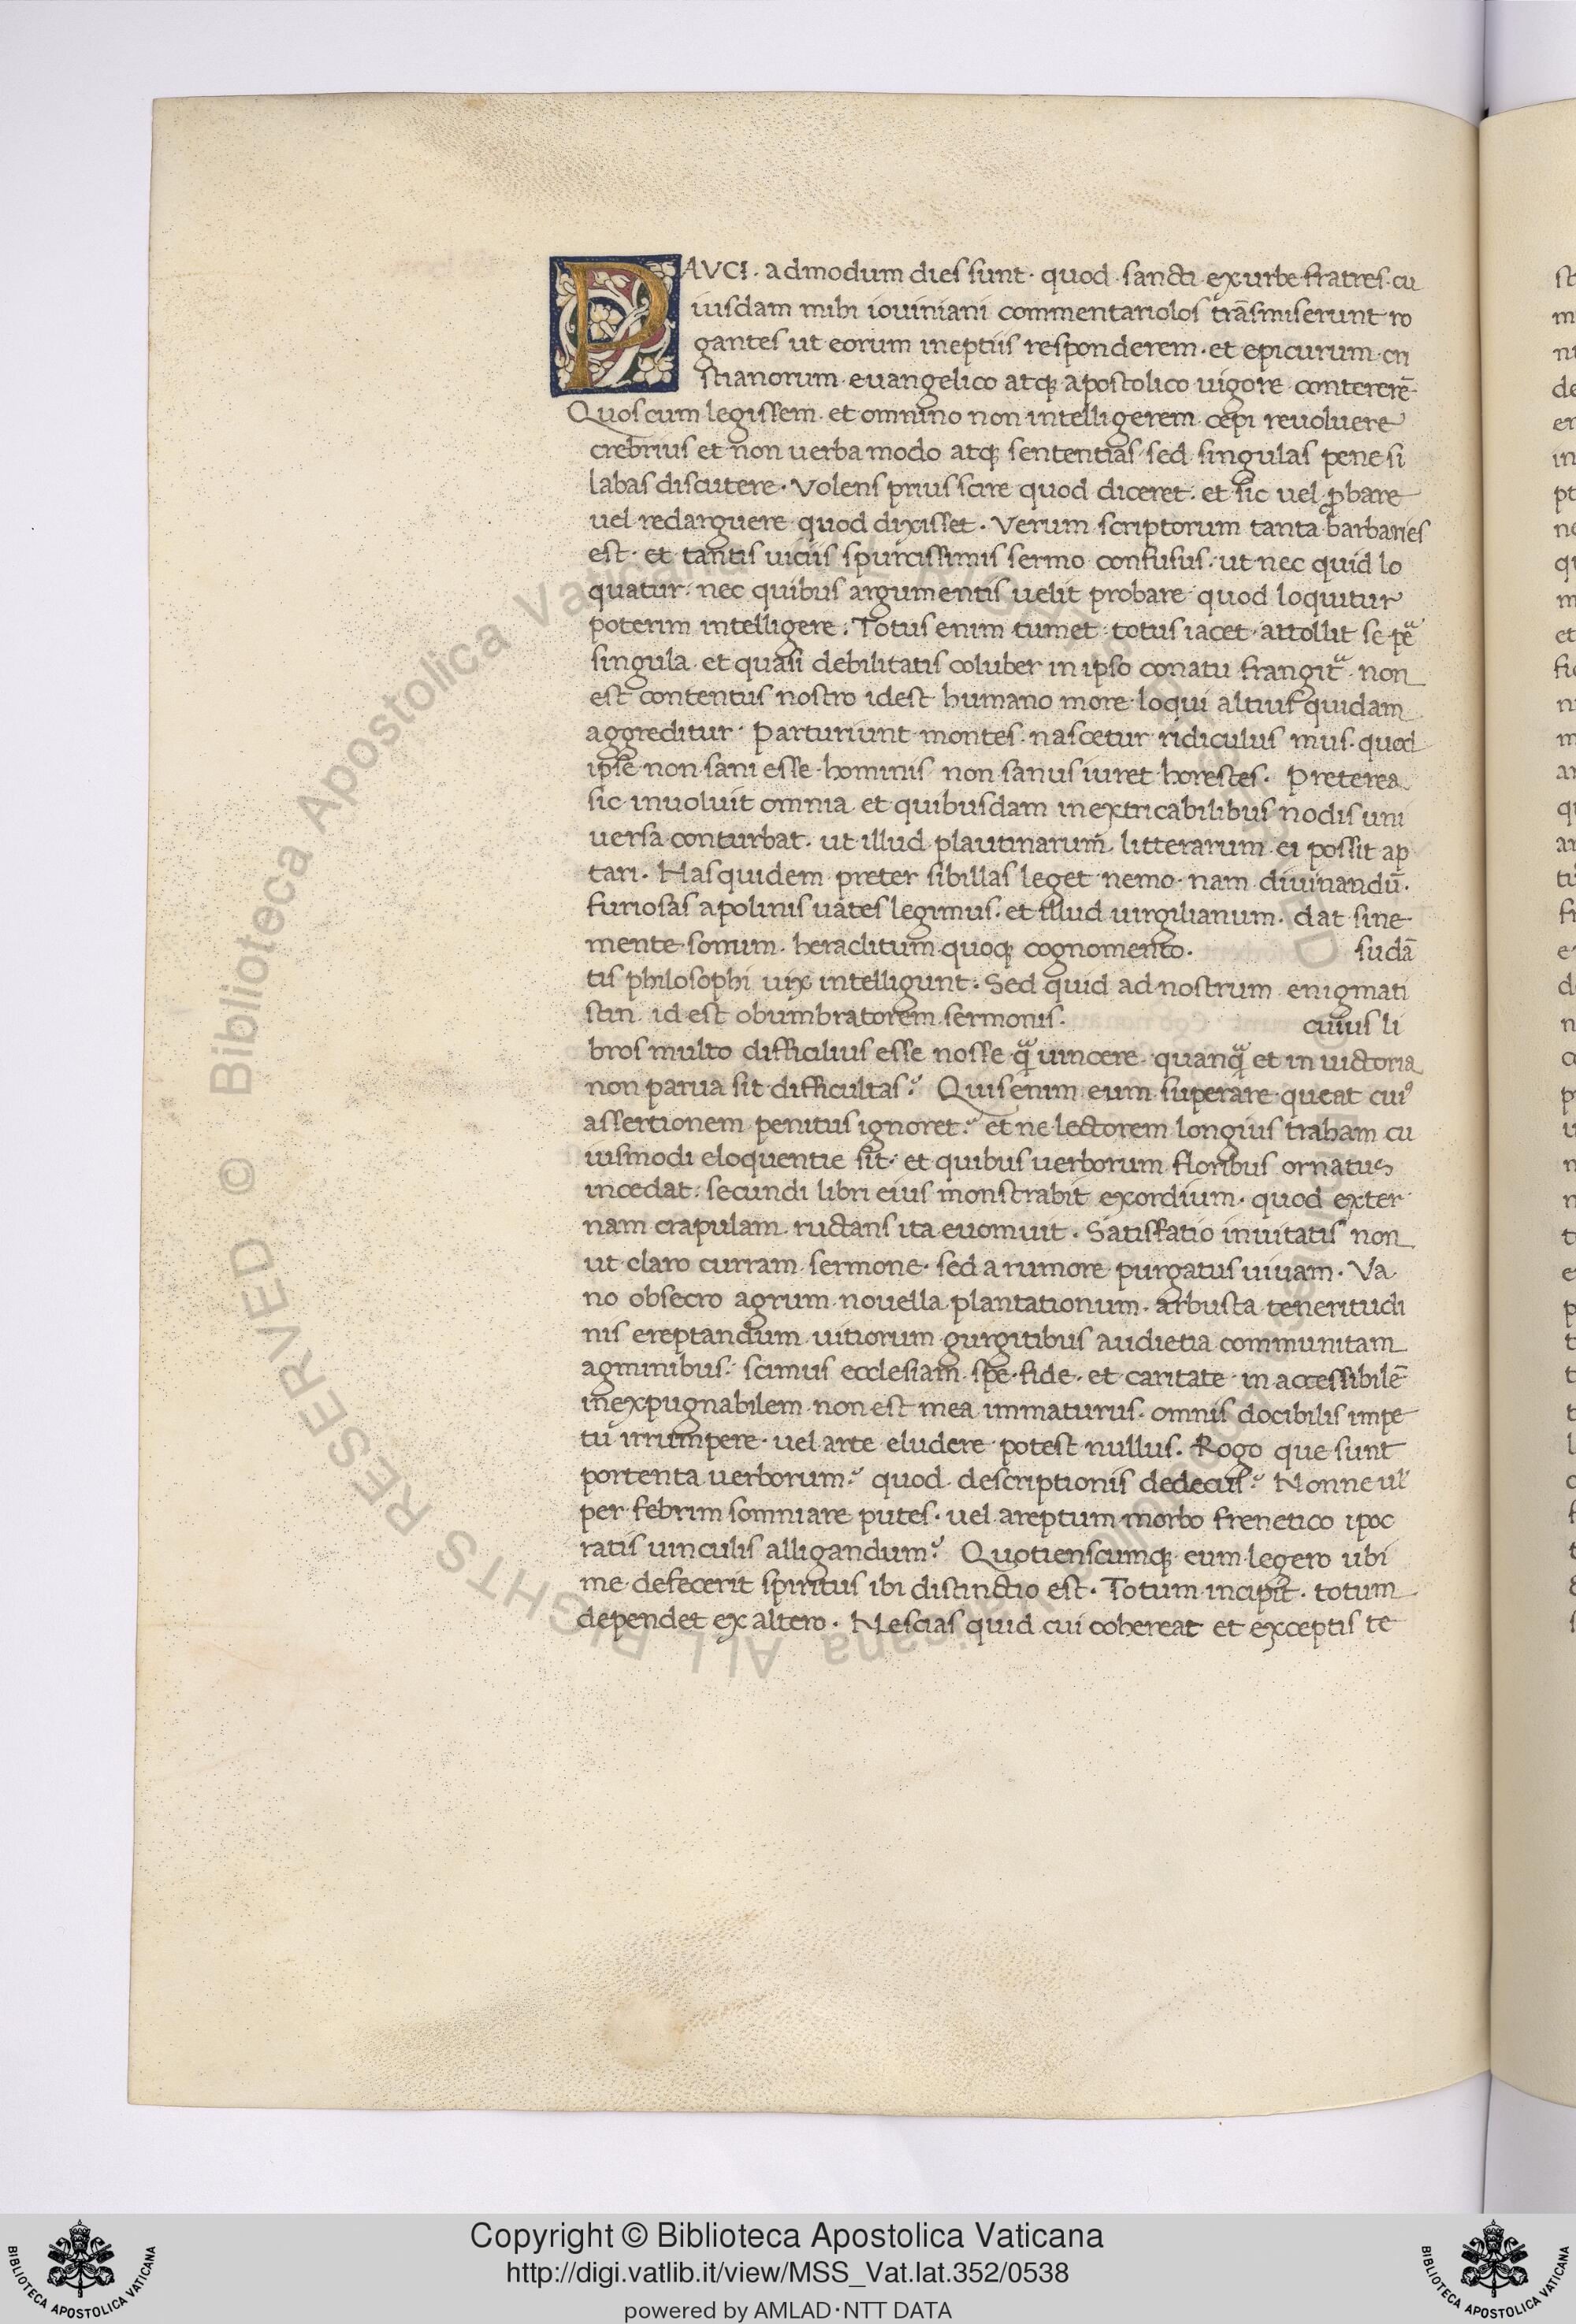 PAVCI. admodum dies sunt. quod sancti ex urbe fratres. cu
iusdam mihi iouiniani commentariolos trãsmiserunt ro
gantes ut eorum ineptiis responderem. et epicurum cri
stianorum euangelico atq; apostolico uigore contererẽ
Quos cum legissem. et omnino non intelligerem. cepi reuoluere
crebrius et non uerba modo atq; sententias sed singulas pene si
labas discutere. Volens prius scire quod diceret. et sic uel ꝓbare
uel redarguere quod dixisset. Verum scriptorum tanta barbaries
est. et tantis uiciis spurcissimis sermo confusus. ut nec quid lo
quatur. nec quibus argumentis uelit probare quod loquitur
poterim intelligere. Totus enim tumet. totus iacet. attollit se ꝑ
singula. et quasi debilitatis coluber in ipso conatu frangit. non
est contentus nostro idest humano more loqui altius quidam
aggreditur. Parturiunt montes. nascetur ridiculus mus. quod
ipse non sani esse hominis non sanus iuret horestes. Preterea
sic inuoluit omnia et quibusdam inextricabilibus nodis uni
uersa conturbat. ut illud plautinarum litterarum ei possit ap
tari. Has quidem preter sibillas leget nemo. nam diuinandũ.
furiosas apolinis uates legimus. et illud uirgilianum. dat sine
mente sonum. heraclitum quoq; cognomento. sudã
tis philosophi uix intelligunt. Sed quid ad nostrum enigmati
stin id est obumbratorem sermonis. cuius li
bros multo difficilius esse nosse q̃ uincere. quanq̃ et in uictoria
non parua sit difficultas? Quis enim eum superare queat cui⁹
assertionem penitus ignoret? et ne lectorem longius traham cu
iusmodi eloquentie sit. et quibus uerborum floribus ornatus
incedat. secundi libri eius monstrabit exordium. quod exter
nam crapulam ructans ita euomuit. Satisfatio inuitatis non
ut claro curram sermone. sed a rumore purgatus uiuam. Va
no obsecro agrum nouella plantationum. arbusta teneritudi
nis ereptandum uitiorum gurgitibus audietia communitam
agminibus. scimus ecclesiam spe. fide. et caritate inaccessibilẽ
inexpugnabilem non est mea immaturus. omnis docibilis impe
tu irrumpere. uel arte eludere potest nullus. Rogo que sunt
portenta uerborum? quod descriptionis dedecus? Nonne ul̃
per febrim somniare putes. uel areptum morbo frenetico ipoc
ratis uinculis alligandum? Quotienscumq; eum legero ubi
me defecerit spiritus ibi distinctio est. Totum incipit. totum
dependet ex altero. Nescias quid cui cohereat et exceptis te
Biblioteca Apostolica Vaticana
ALL RIGHTS RESERVED ©
Copyright © Biblioteca Apostolica Vaticana
http://digi.vatlib.it/view/MSS_Vat.lat.352/0538
powered by AMLAD·NTT DATA
BIBLIOTECA APOSTOLICA VATICANA
BIBLIOTECA APOSTOLICA VATICANA